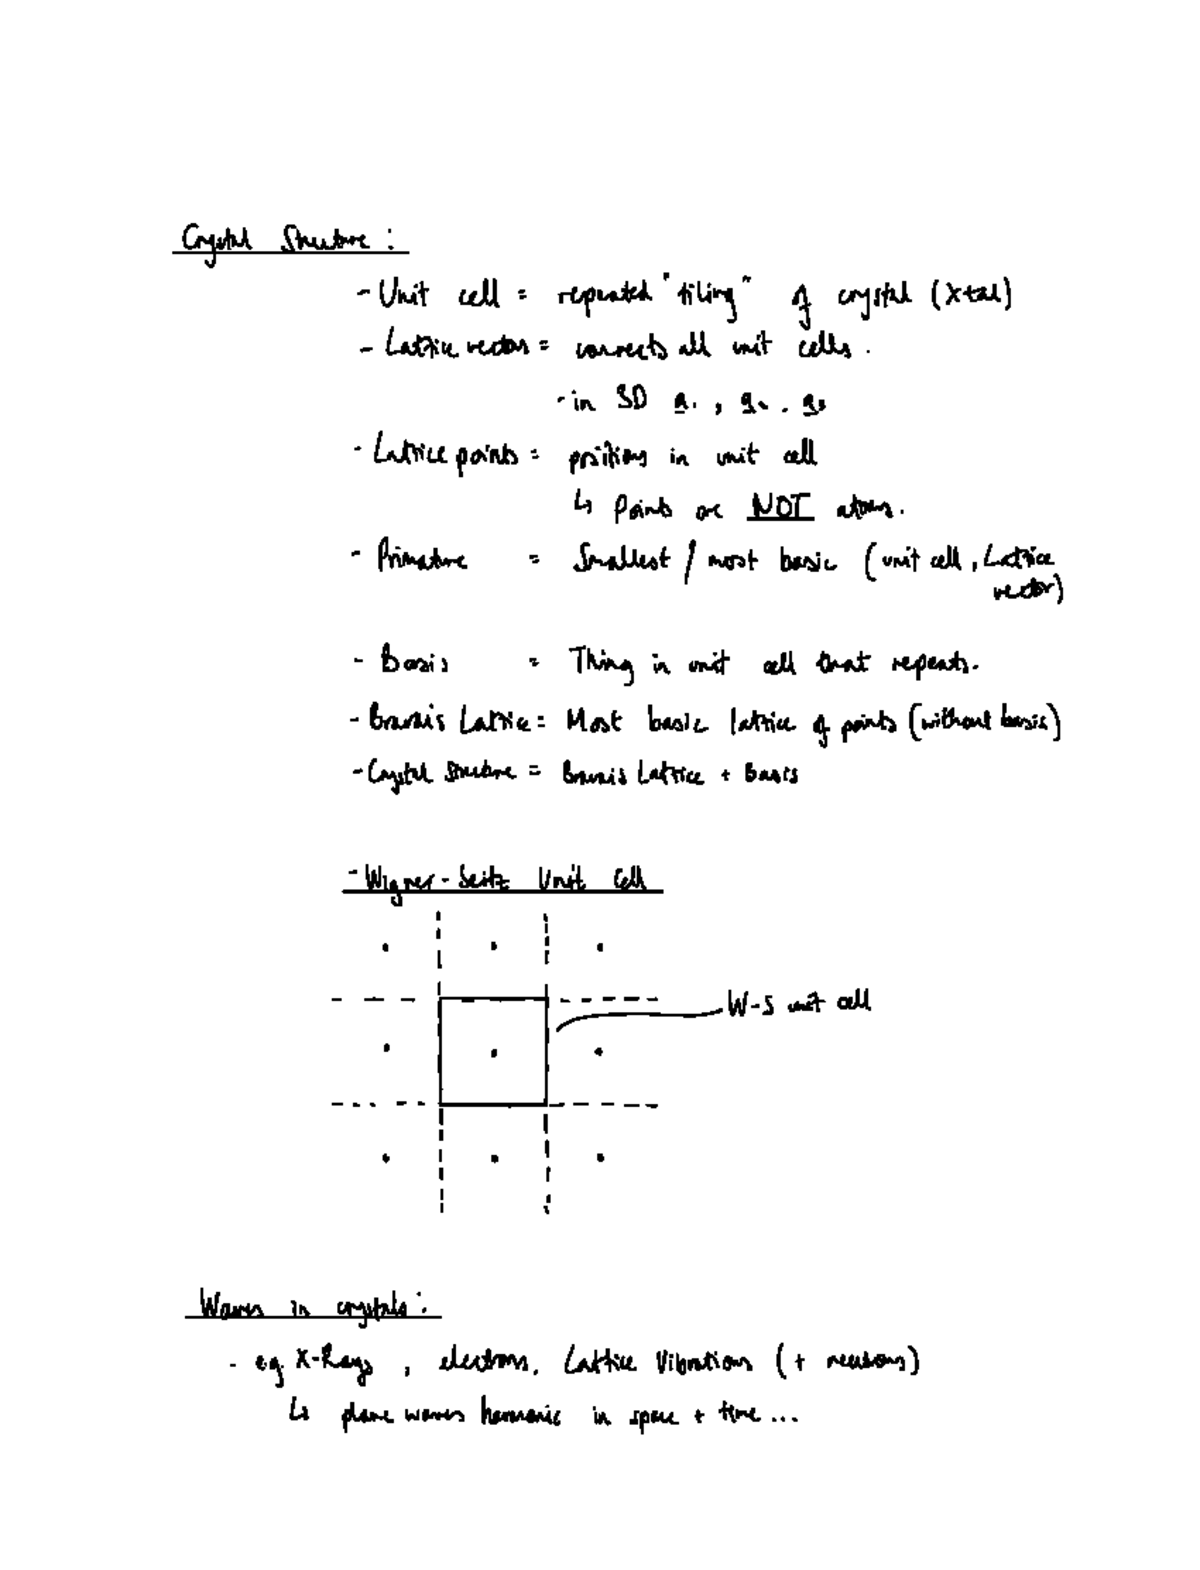 Crystal Structure :
- Unit cell = repeated "tiling" of crystal (Xtal)
- Lattice vectors = connects all unit cells .
- in 3D a₁ , a₂ , a₃
- Lattice points = positions in unit cell
↳ Points are NOT atoms.
- Primative = Smallest / most basic (unit cell , Lattice
vector)
- Basis = Thing in unit cell that repeats.
- Bravais Lattice = Most basic lattice of points (without basis)
- Crystal Structure = Bravais Lattice + Basis
- Wigner - Seitz Unit Cell
W-S unit cell
Waves in crystals :
- eg. X-Rays , electrons, Lattice Vibrations (+ neutrons)
↳ plane waves harmonic in space + time ...